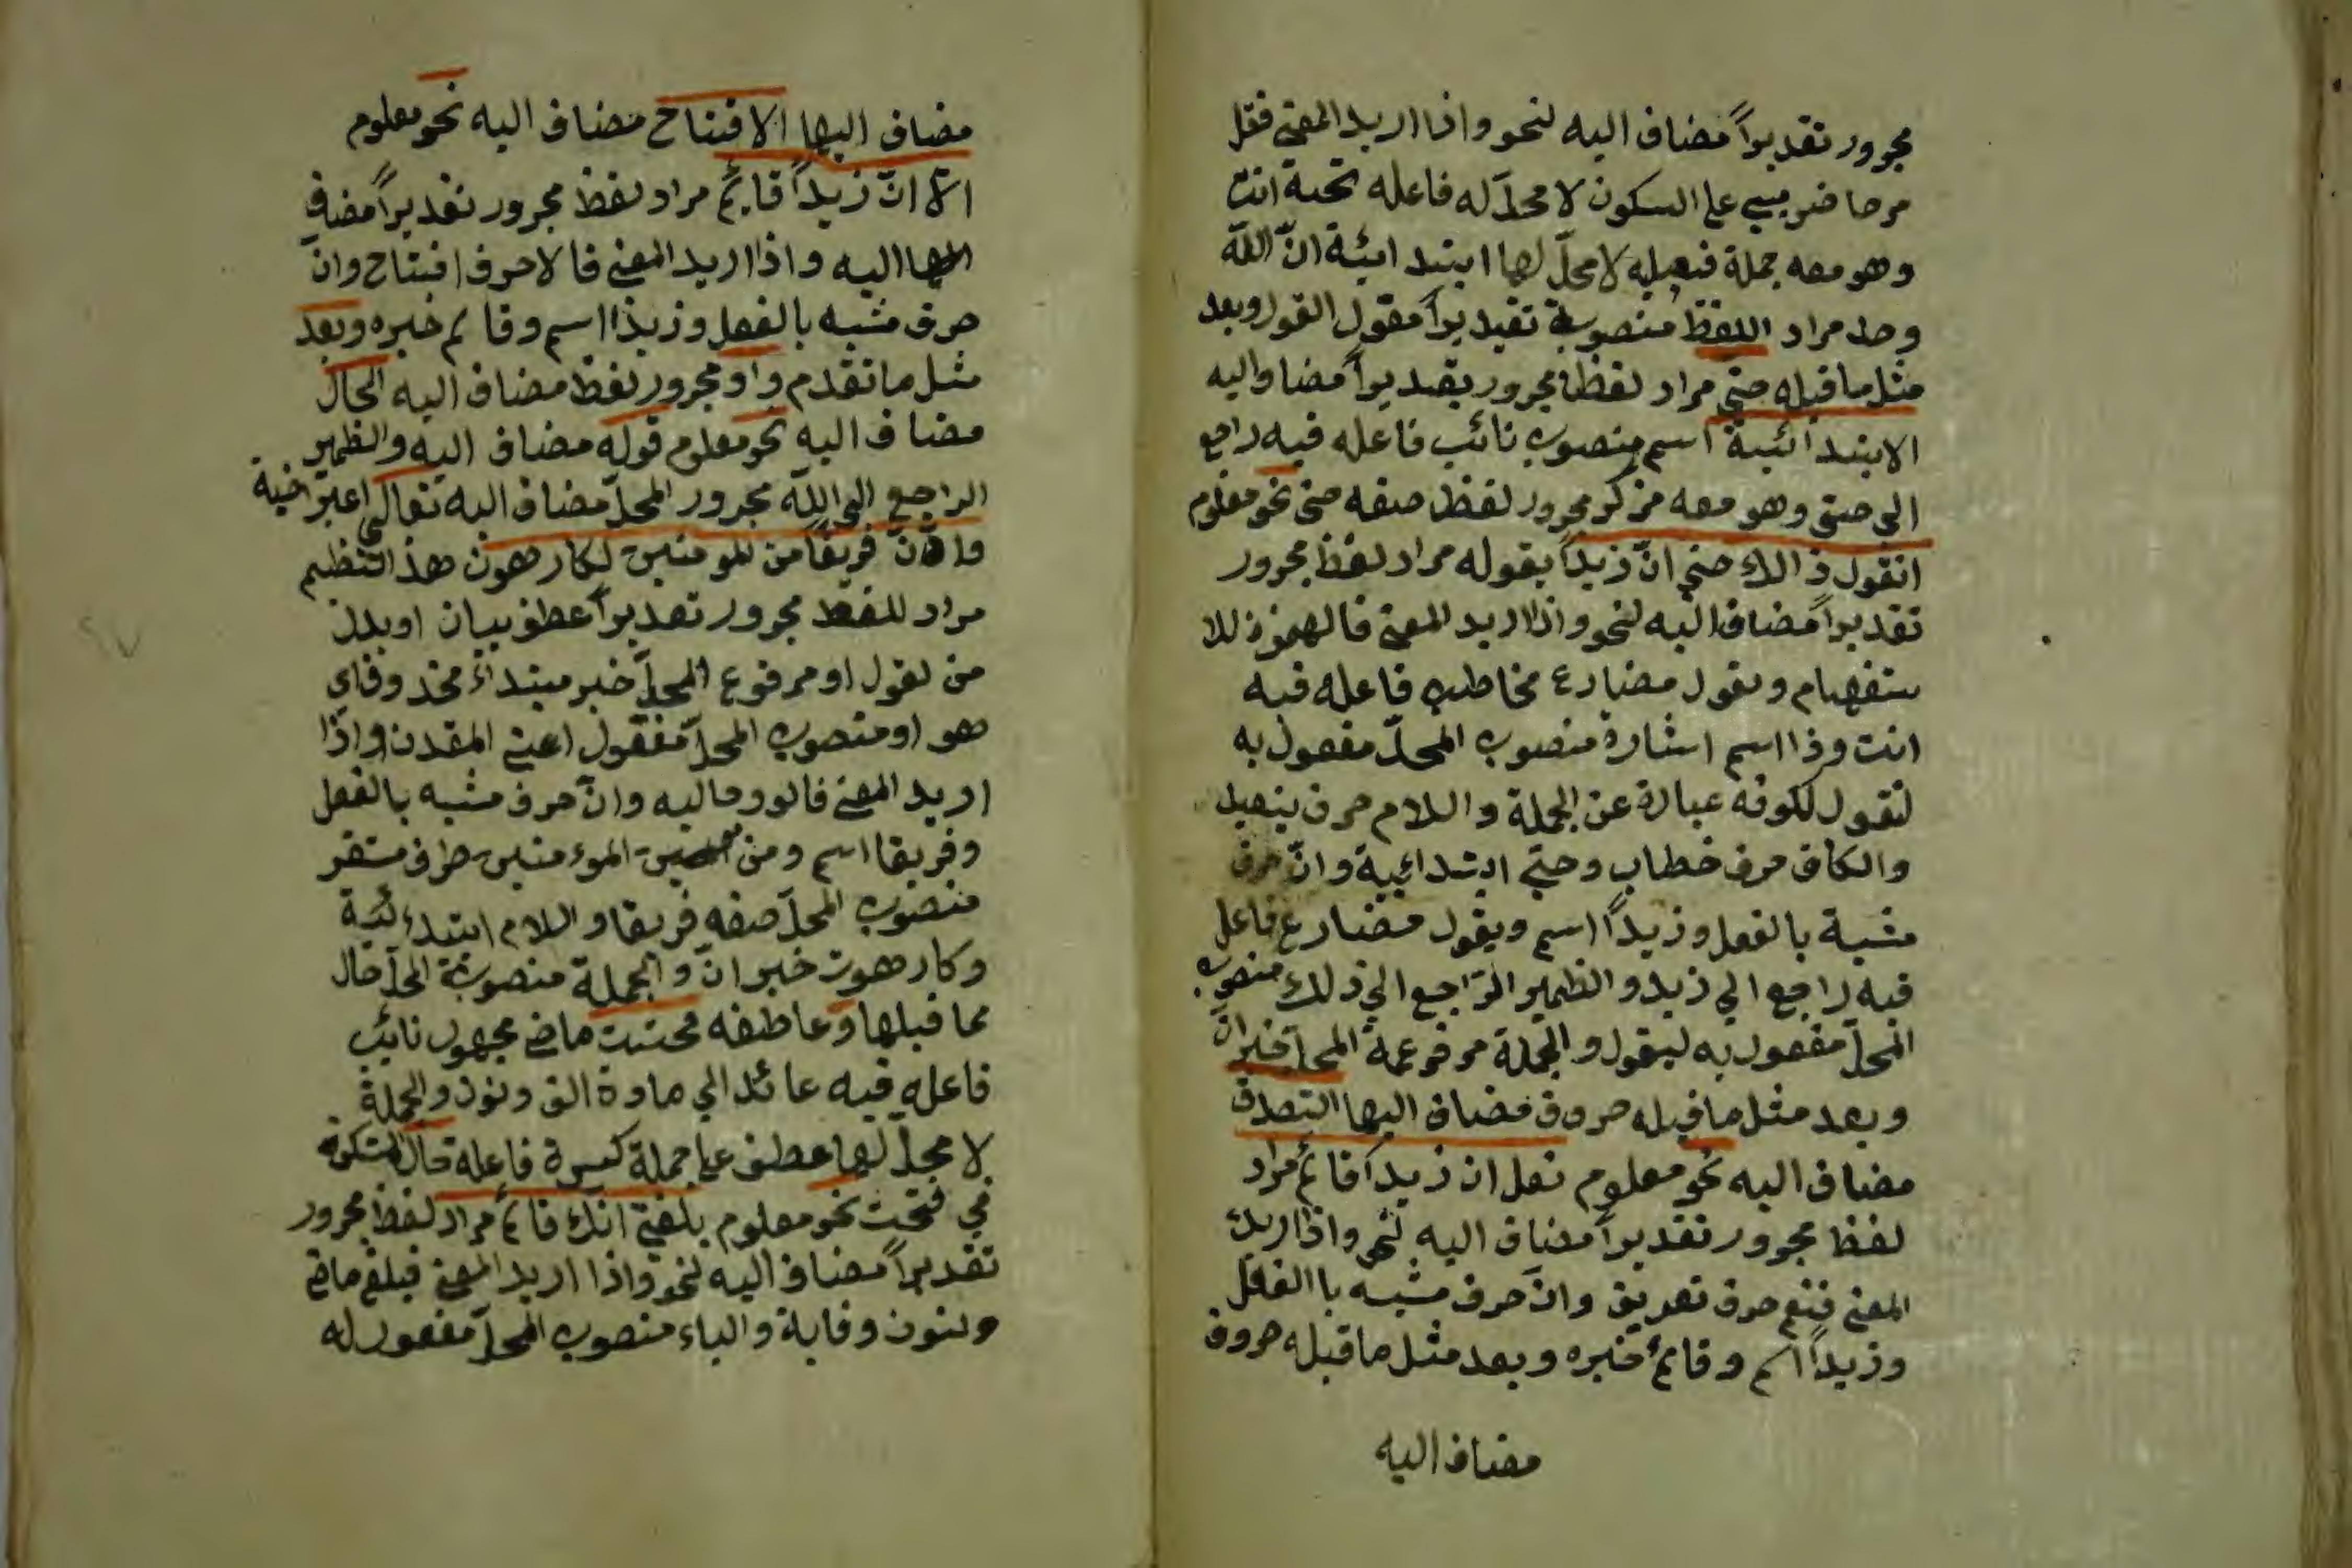 مجرور تقديراً مضاف اليه لنحو واذا اريد المعنى فقل
مرحاضر مبني على السكون لا محلّ له فاعله تحته انت
وهو معه جملة فعليه لا محلّ لها ابتدائية انّ اللّه
وحد مراد اللفظ منصوبة تقديراً مقول القول وبعد
مثل ما قبله حتى مراد لفظا مجرور تقديراً مضاو اليه
الابتدائية اسم منصوب نائب فاعله فيه راجع
الى حتى وهو معه مركر مجرور لفظ صفه حتى نحو معلوم
اتقول ذالك حتى انّ زيداً يقوله مراد لفظ مجرور
تقديراً مضاف اليه لنحو واذا اريد المعنى فالهمزة للا
ستفهام وتقول مضارع مخاطب فاعله فيه
انت وذا اسم اشارة منصوب المحلّ مفعول به
لتقول لكونه عبارة عن الجملة واللام حرف ينعيد
والكاف حرف خطاب وحتى ابتدائيية وانّ حرف
مشبة بالفعل وزيداً اسم ويقول مضارع فاعل
فيه راجع الي زيد والظمير الرّاجع الي ذلك منصوب
المحلّ مفعول به ليقول والجملة مرفوعمة المحلّ خبر انّ
وبعد مثل ما قبله حروف مضاف اليها التصدق
مضاف اليه نحو معلوم نعل ان زيداً قائم مراد
لفظ مجرور تقديراً مضاف اليه لنحو واذا اريد
المعنى فنعم حرف تعديق وانّ حرف مشبه باالفعل
وزيداً اسم وقائم خبره وبعد مثل ما قبله حروف
مضاف اليه
مضاف اليها الافتتاح مضاف اليه نحو معلوم
الا انّ زيداً قايم مراد لفظ مجرور تقديراً مضاف
اليه واذا اريد المعنى فالا حرف افتتاح وانّ
حرف مشبه بالفعل وزيدا اسم وقائم خبره وبعد
مثل ما تقدم واو مجرور لفظ مضاف اليه الحال
مضاف اليه نحو معلوم قوله مضاف اليه والظمير
الراجع الى اللّه مجرور المحلّ مضاف اليه تعالى اعتراضية
وانّ فريقاً من المومنين لكارهون هذا
مراد للفظ مجرور تقديراً عطف بيان او بدل
من لقول او مرفوع المحلّ خبر مبتداء محذوف اي
هو او منصوب المحلّ مفعول اعنى المقدن واذا
اريد المعنى فالوو حاليه وانّ حرف مشبه بالفعل
وفريقا اسم ومن الموءمنين ظرف مستقر
منصوب المحلّ صفه فريقا واللام ابتداءئية
وكارهون خبر انّ والجملة منصوبة المحلّ حال
مما قبلها وعاطفه فحتت ماضى مجهول نائب
فاعله فيه عائد الي مادة الف ونون والجملة
لا محلّ لها عطف على جملة كسرة فاعله
في فتحت نحو معلوم بلغنى انك قائم مراد لفظ مجرور
تقديراً مضاف اليه لنحو واذا اريد المعنى فبلغ ماضى
ولنون وقاية والياء منصوب المحلّ مفعول له